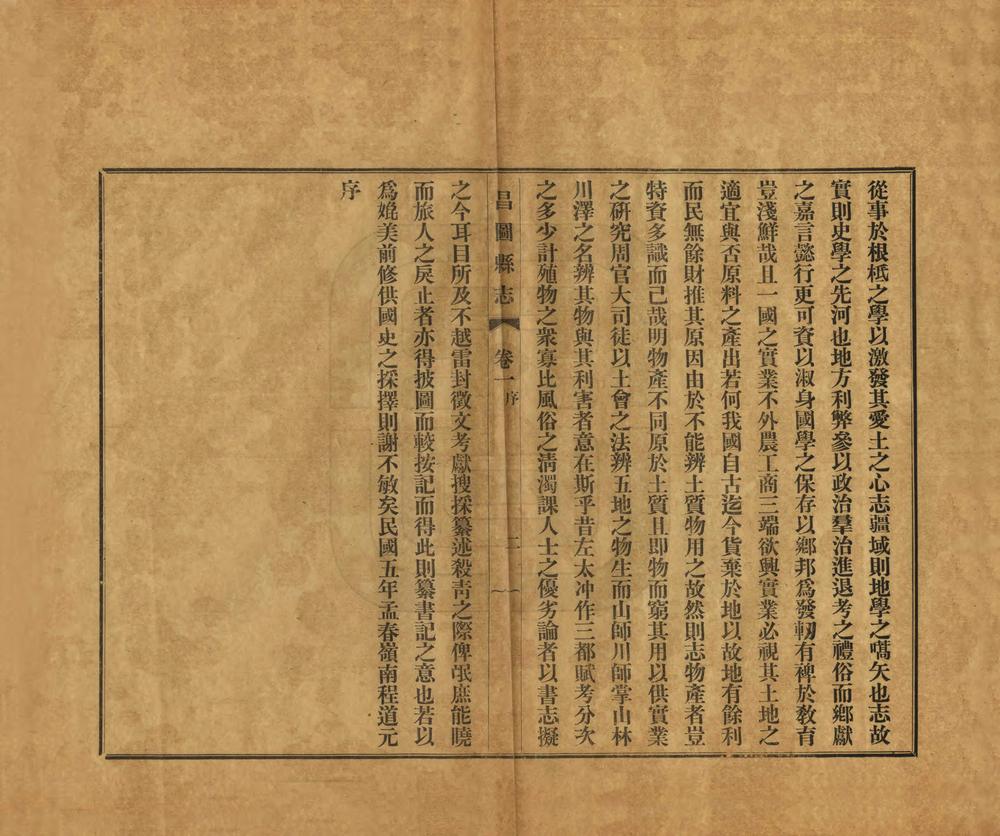 從事於根柢之學以激發其愛土之心志疆域則地學之嚆矢也志故
實則史學之先河也地方利弊參以政治羣治進退考之禮俗而鄉獻
之嘉言懿行更可資以淑身國學之保存以鄉邦爲發軔有裨於敎育
豈淺鮮哉且一國之實業不外農工商三端欲興實業必視其土地之
適宜與否原料之產出若何我國自古迄今貨棄於地以故地有餘利
而民無餘財推其原因由於不能辨土質物用之故然則志物產者豈
特資多識而已哉明物產不同原於土質且即物而窮其用以供實業
之硏究周官大司徒以土會之法辨五地之物生而山師川師掌山林
川澤之名辨其物與其利害者意在斯乎昔左太冲作三都賦考分次
之多少計殖物之衆寡比風俗之淸濁課人士之優劣論者以書志擬
昌圖縣志 卷一 序 二
之今耳目所及不越雷封徵文考獻搜採纂述殺靑之際俾氓庶能曉
而旅人之戾止者亦得披圖而較按記而得此則纂書記之意也若以
爲媲美前修供國史之採擇則謝不敏矣民國五年孟春嶺南程道元
序